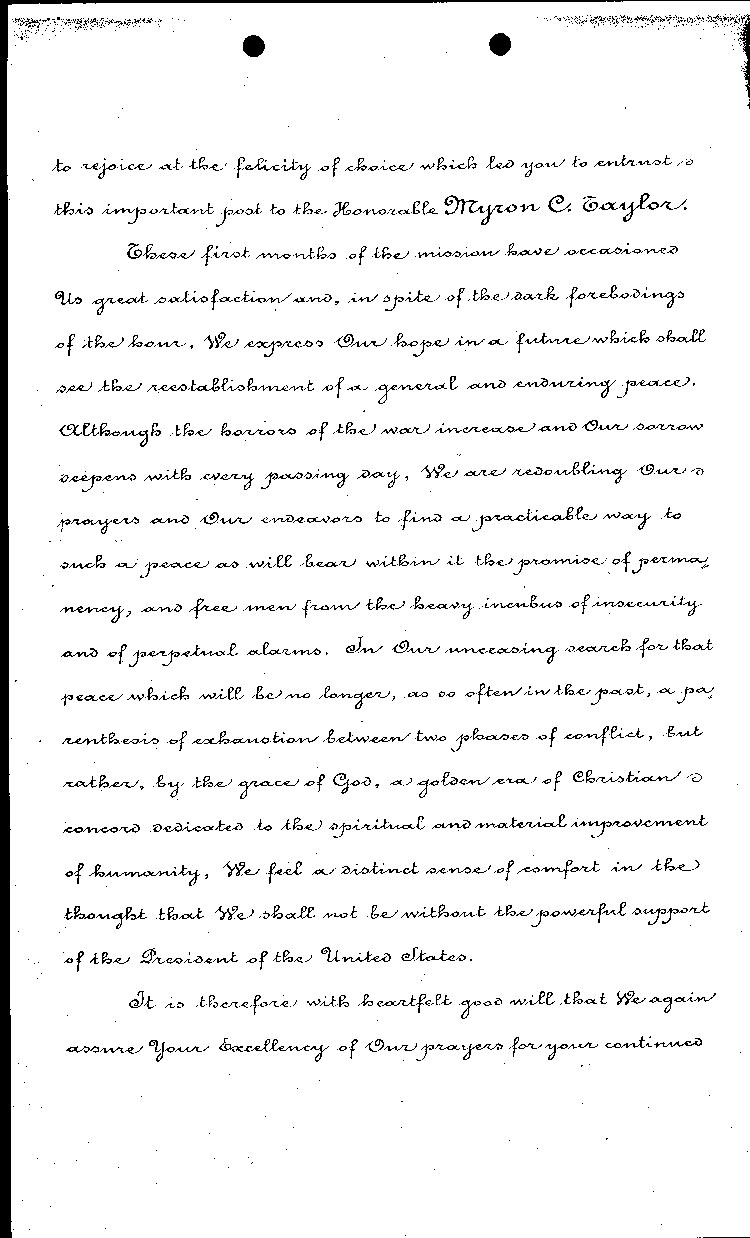 to rejoice at the felicity of choice which led you to entrust
this important post to the Honorable Myron C. Taylor.
These first months of the mission have occasioned
Us great satisfaction and, in spite of the dark forebodings
of the hour, We express Our hope in a future which shall
see the reestablishment of a general and enduring peace.
Although the horrors of the war increase and Our sorrow
deepens with every passing day, We are redoubling Our
prayers and Our endeavors to find a practicable way to
such a peace as will bear within it the promise of perma,
nency, and free men from the heavy incubus of insecurity
and of perpetual alarms. In Our unceasing search for that
peace which will be no longer, as so often in the past, a pa,
renthesis of exhaustion between two phases of conflict, but
rather, by the grace of God, a golden era of Christian
concord dedicated to the spiritual and material improvement
of humanity, We feel a distinct sense of comfort in the
thought that We shall not be without the powerful support
of the President of the United States.
It is therefore with heartfelt good will that We again
assure Your Excellency of Our prayers for your continued